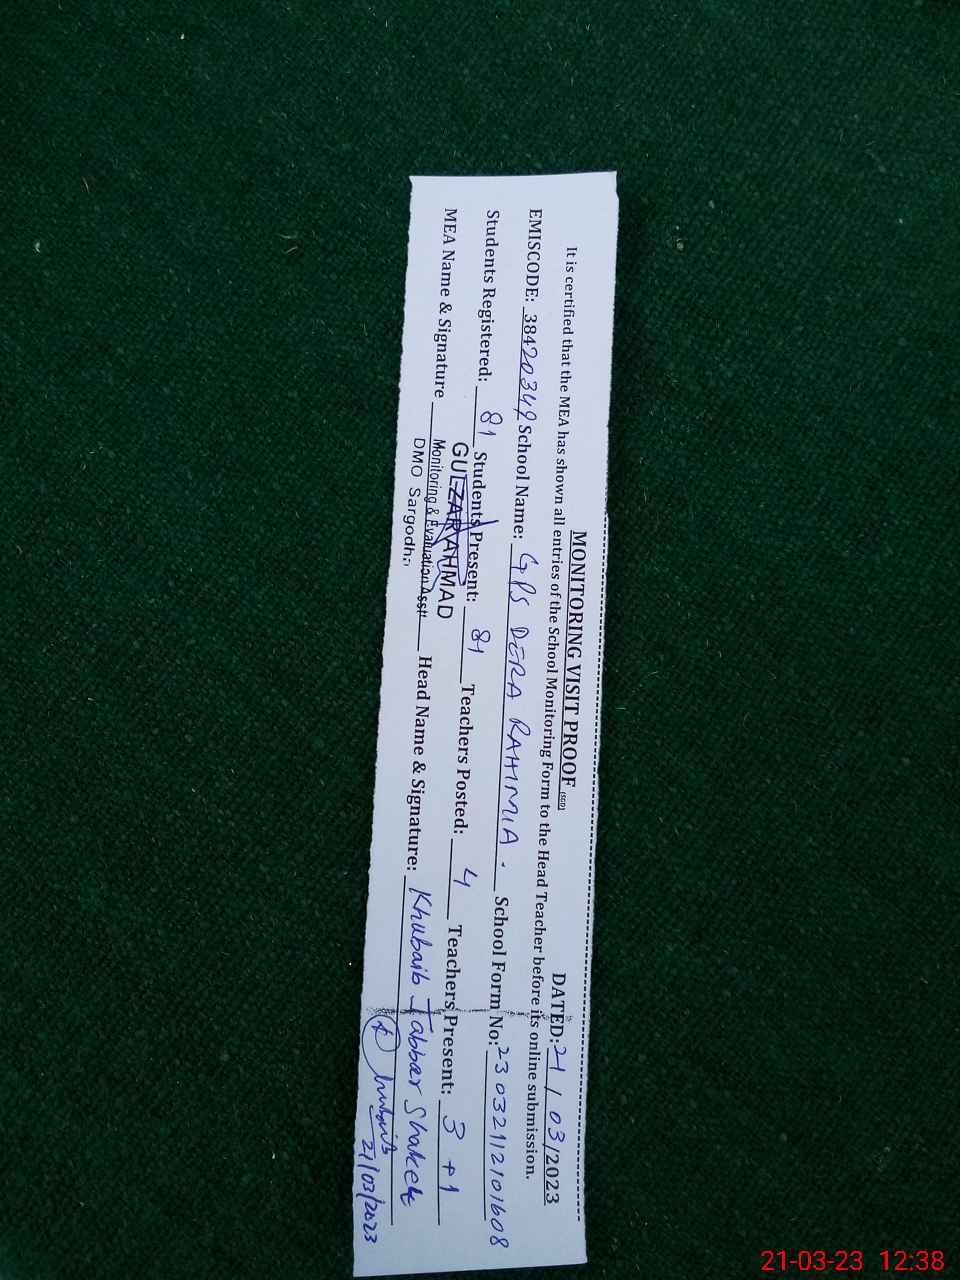 MONITORING VISIT PROOF (SGD)
DATED: 21 / 03 /2023
It is certified that the MEA has shown all entries of the School Monitoring Form to the Head Teacher before its online submission.
EMISCODE: 38420349 School Name: GPS DERA RAHIMIA. School Form No: 23032112101608
Students Registered: 81 Students Present: 81 Teachers Posted: 4 Teachers Present: 3 +1
GULZAR AHMAD
MEA Name & Signature Monitoring & Evaluation Asstt Head Name & Signature: Khubaib Jabbar
DMO Sargodha
21/03/2023
21-03-23 12:38